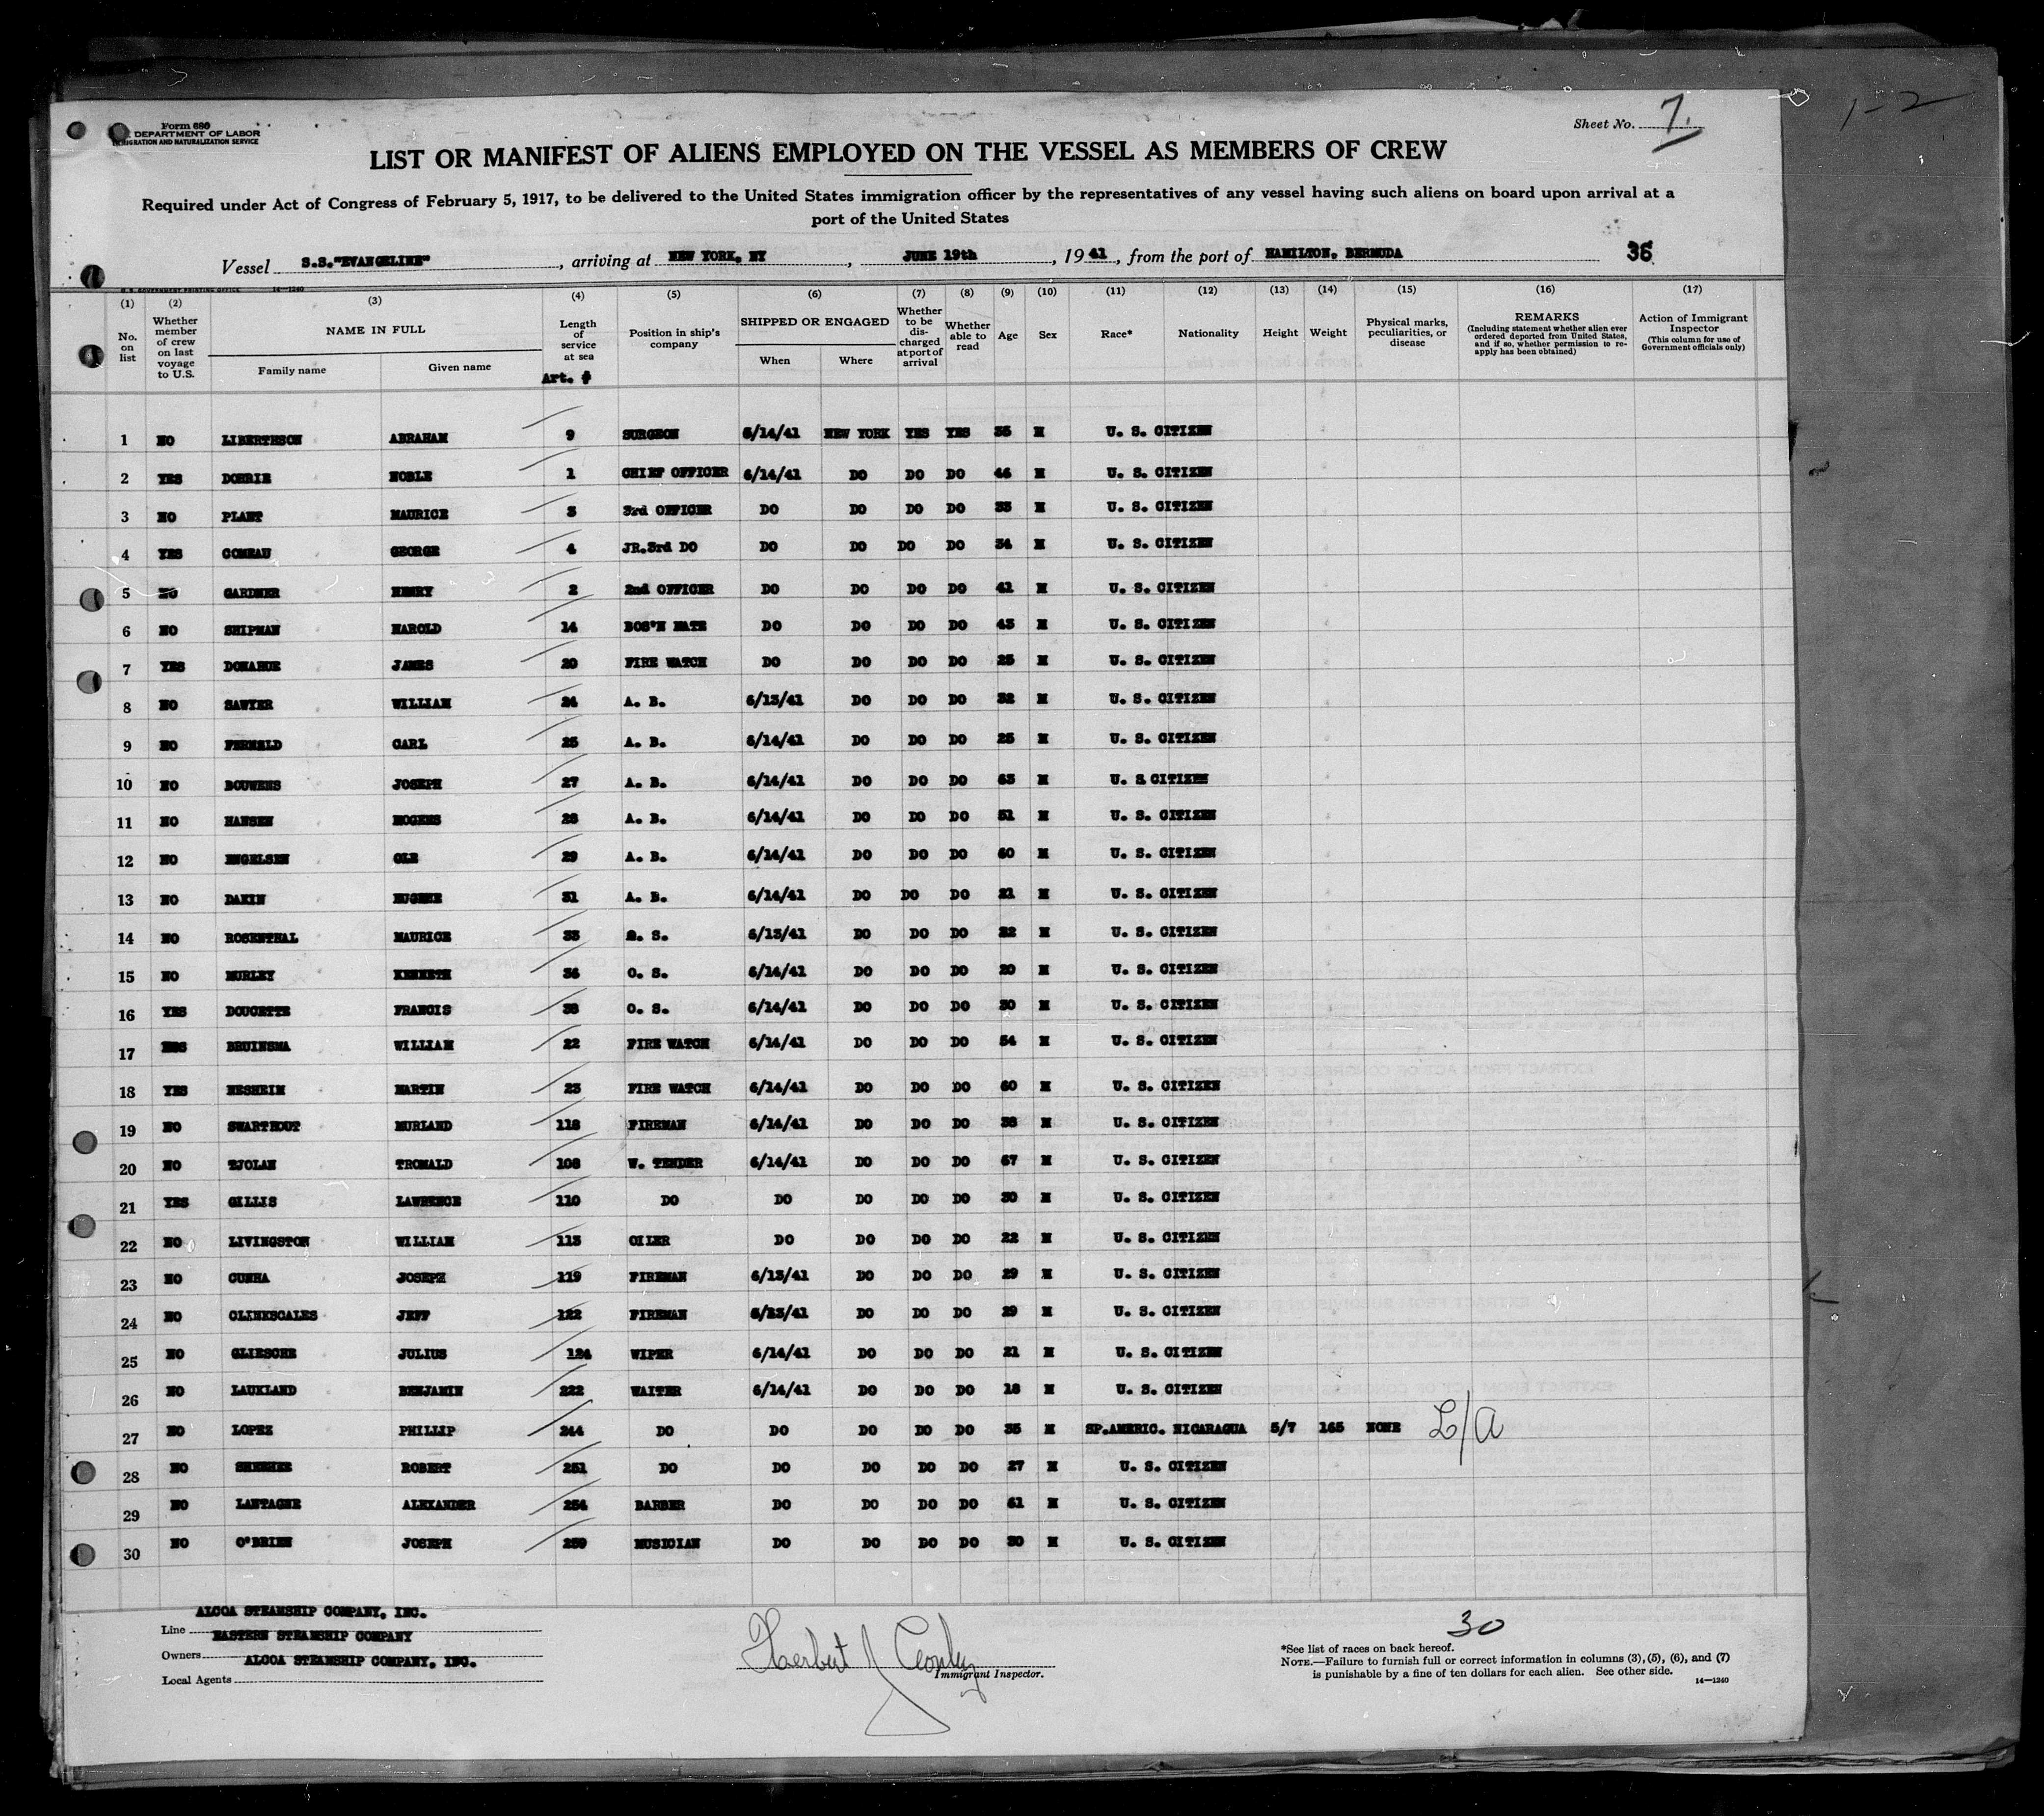 Form 680
DEPARTMENT OF LABOR
IMMIGRATION AND NATURALIZATION SERVICE
Sheet No. 7.
1-2
LIST OR MANIFEST OF ALIENS EMPLOYED ON THE VESSEL AS MEMBERS OF CREW
Required under Act of Congress of February 5, 1917, to be delivered to the United States immigration officer by the representatives of any vessel having such aliens on board upon arrival at a
port of the United States
Vessel S.S."EVANGELINE", arriving at NEW YORK, NY, JUNE 19th, 1941, from the port of HAMILTON, BERMUDA 36
U. S. GOVERNMENT PRINTING OFFICE 14—1240
(1) No. on list (2) Whether member of crew on last voyage to U.S. (3) NAME IN FULL Family name Given name (4) Length of service at sea Art. # (5) Position in ship's company (6) SHIPPED OR ENGAGED When Where (7) Whether to be discharged at port of arrival (8) Whether able to read (9) Age (10) Sex (11) Race* (12) Nationality (13) Height (14) Weight (15) Physical marks, peculiarities, or disease (16) REMARKS (Including statement whether alien ever ordered deported from United States, and if so, whether permission to re-apply has been obtained) (17) Action of Immigrant Inspector (This column for use of Government officials only)
1 NO LIBERTHSON ABRAHAM 9 SURGEON 6/14/41 NEW YORK YES YES 35 M U. S. CITIZEN
2 YES DOHRIE NOBLE 1 CHIEF OFFICER 6/14/41 DO DO DO 46 M U. S. CITIZEN
3 NO PLANT MAURICE 3 3rd OFFICER DO DO DO DO 33 M U. S. CITIZEN
4 YES COMEAU GEORGE 4 JR.3rd DO DO DO DO DO 34 M U. S. CITIZEN
5 NO GARDNER HENRY 2 2nd OFFICER DO DO DO DO 41 M U. S. CITIZEN
6 NO SHIPMAN HAROLD 14 BOS'N MATE DO DO DO DO 43 M U. S. CITIZEN
7 YES DONAHUE JAMES 20 FIRE WATCH DO DO DO DO 25 M U. S. CITIZEN
8 NO SAWYER WILLIAM 24 A. B. 6/13/41 DO DO DO 32 M U. S. CITIZEN
9 NO FERNALD CARL 25 A. B. 6/14/41 DO DO DO 25 M U. S. CITIZEN
10 NO BOUWENS JOSEPH 27 A. B. 6/14/41 DO DO DO 63 M U. S CITIZEN
11 NO HANSEN MOGENS 28 A. B. 6/14/41 DO DO DO 51 M U. S. CITIZEN
12 NO ENGELSEN OLE 29 A. B. 6/14/41 DO DO DO 60 M U. S. CITIZEN
13 NO DAKIN EUGENE 31 A. B. 6/14/41 DO DO DO 21 M U. S. CITIZEN
14 NO ROSENTHAL MAURICE 33 O. S. 6/13/41 DO DO DO 22 M U. S. CITIZEN
15 NO HURLEY KENNETH 36 O. S. 6/14/41 DO DO DO 20 M U. S. CITIZEN
16 YES DOUCETTE FRANCIS 38 O. S. 6/14/41 DO DO DO 30 M U. S. CITIZEN
17 BRUINSMA WILLIAM 22 FIRE WATCH 6/14/41 DO DO DO 54 M U. S. CITIZEN
18 YES NESHEIM MARTIN 23 FIRE WATCH 6/14/41 DO DO DO 60 M U. S. CITIZEN
19 NO SWARTHOUT MURLAND 118 FIREMAN 6/14/41 DO DO DO 38 M U. S. CITIZEN
20 NO TJOLAN TROMALD 108 W. TENDER 6/14/41 DO DO DO 67 M U. S. CITIZEN
21 YES GILLIS LAWRENCE 110 DO DO DO DO DO 30 M U. S. CITIZEN
22 NO LIVINGSTON WILLIAM 113 OILER DO DO DO DO 22 M U. S. CITIZEN
23 NO CUNHA JOSEPH 119 FIREMAN 6/13/41 DO DO DO 29 M U. S. CITIZEN
24 NO CLINKSCALES JEFF 122 FIREMAN 6/13/41 DO DO DO 29 M U. S. CITIZEN
25 NO GLIESCHE JULIUS 124 WIPER 6/14/41 DO DO DO 21 M U. S. CITIZEN
26 NO LAUKLAND BENJAMIN 222 WAITER 6/14/41 DO DO DO 18 M U. S. CITIZEN
27 NO LOPEZ PHILLIP 244 DO DO DO DO DO 35 M SP.AMERIC. NICARAGUA 5/7 165 NONE L/A
28 NO ROBERT 251 DO DO DO DO DO 27 M U. S. CITIZEN
29 NO LANTAGNE ALEXANDER 254 BARBER DO DO DO DO 61 M U. S. CITIZEN
30 NO O'BRIEN JOSEPH 259 MUSICIAN DO DO DO DO 30 M U. S. CITIZEN
ALCOA STEAMSHIP COMPANY, INC.
Line EASTERN STEAMSHIP COMPANY
Owners ALCOA STEAMSHIP COMPANY, INC.
Local Agents
Herbert J Copley
Immigrant Inspector.
30
*See list of races on back hereof.
NOTE.—Failure to furnish full or correct information in columns (3), (5), (6), and (7)
is punishable by a fine of ten dollars for each alien. See other side.
14—1240